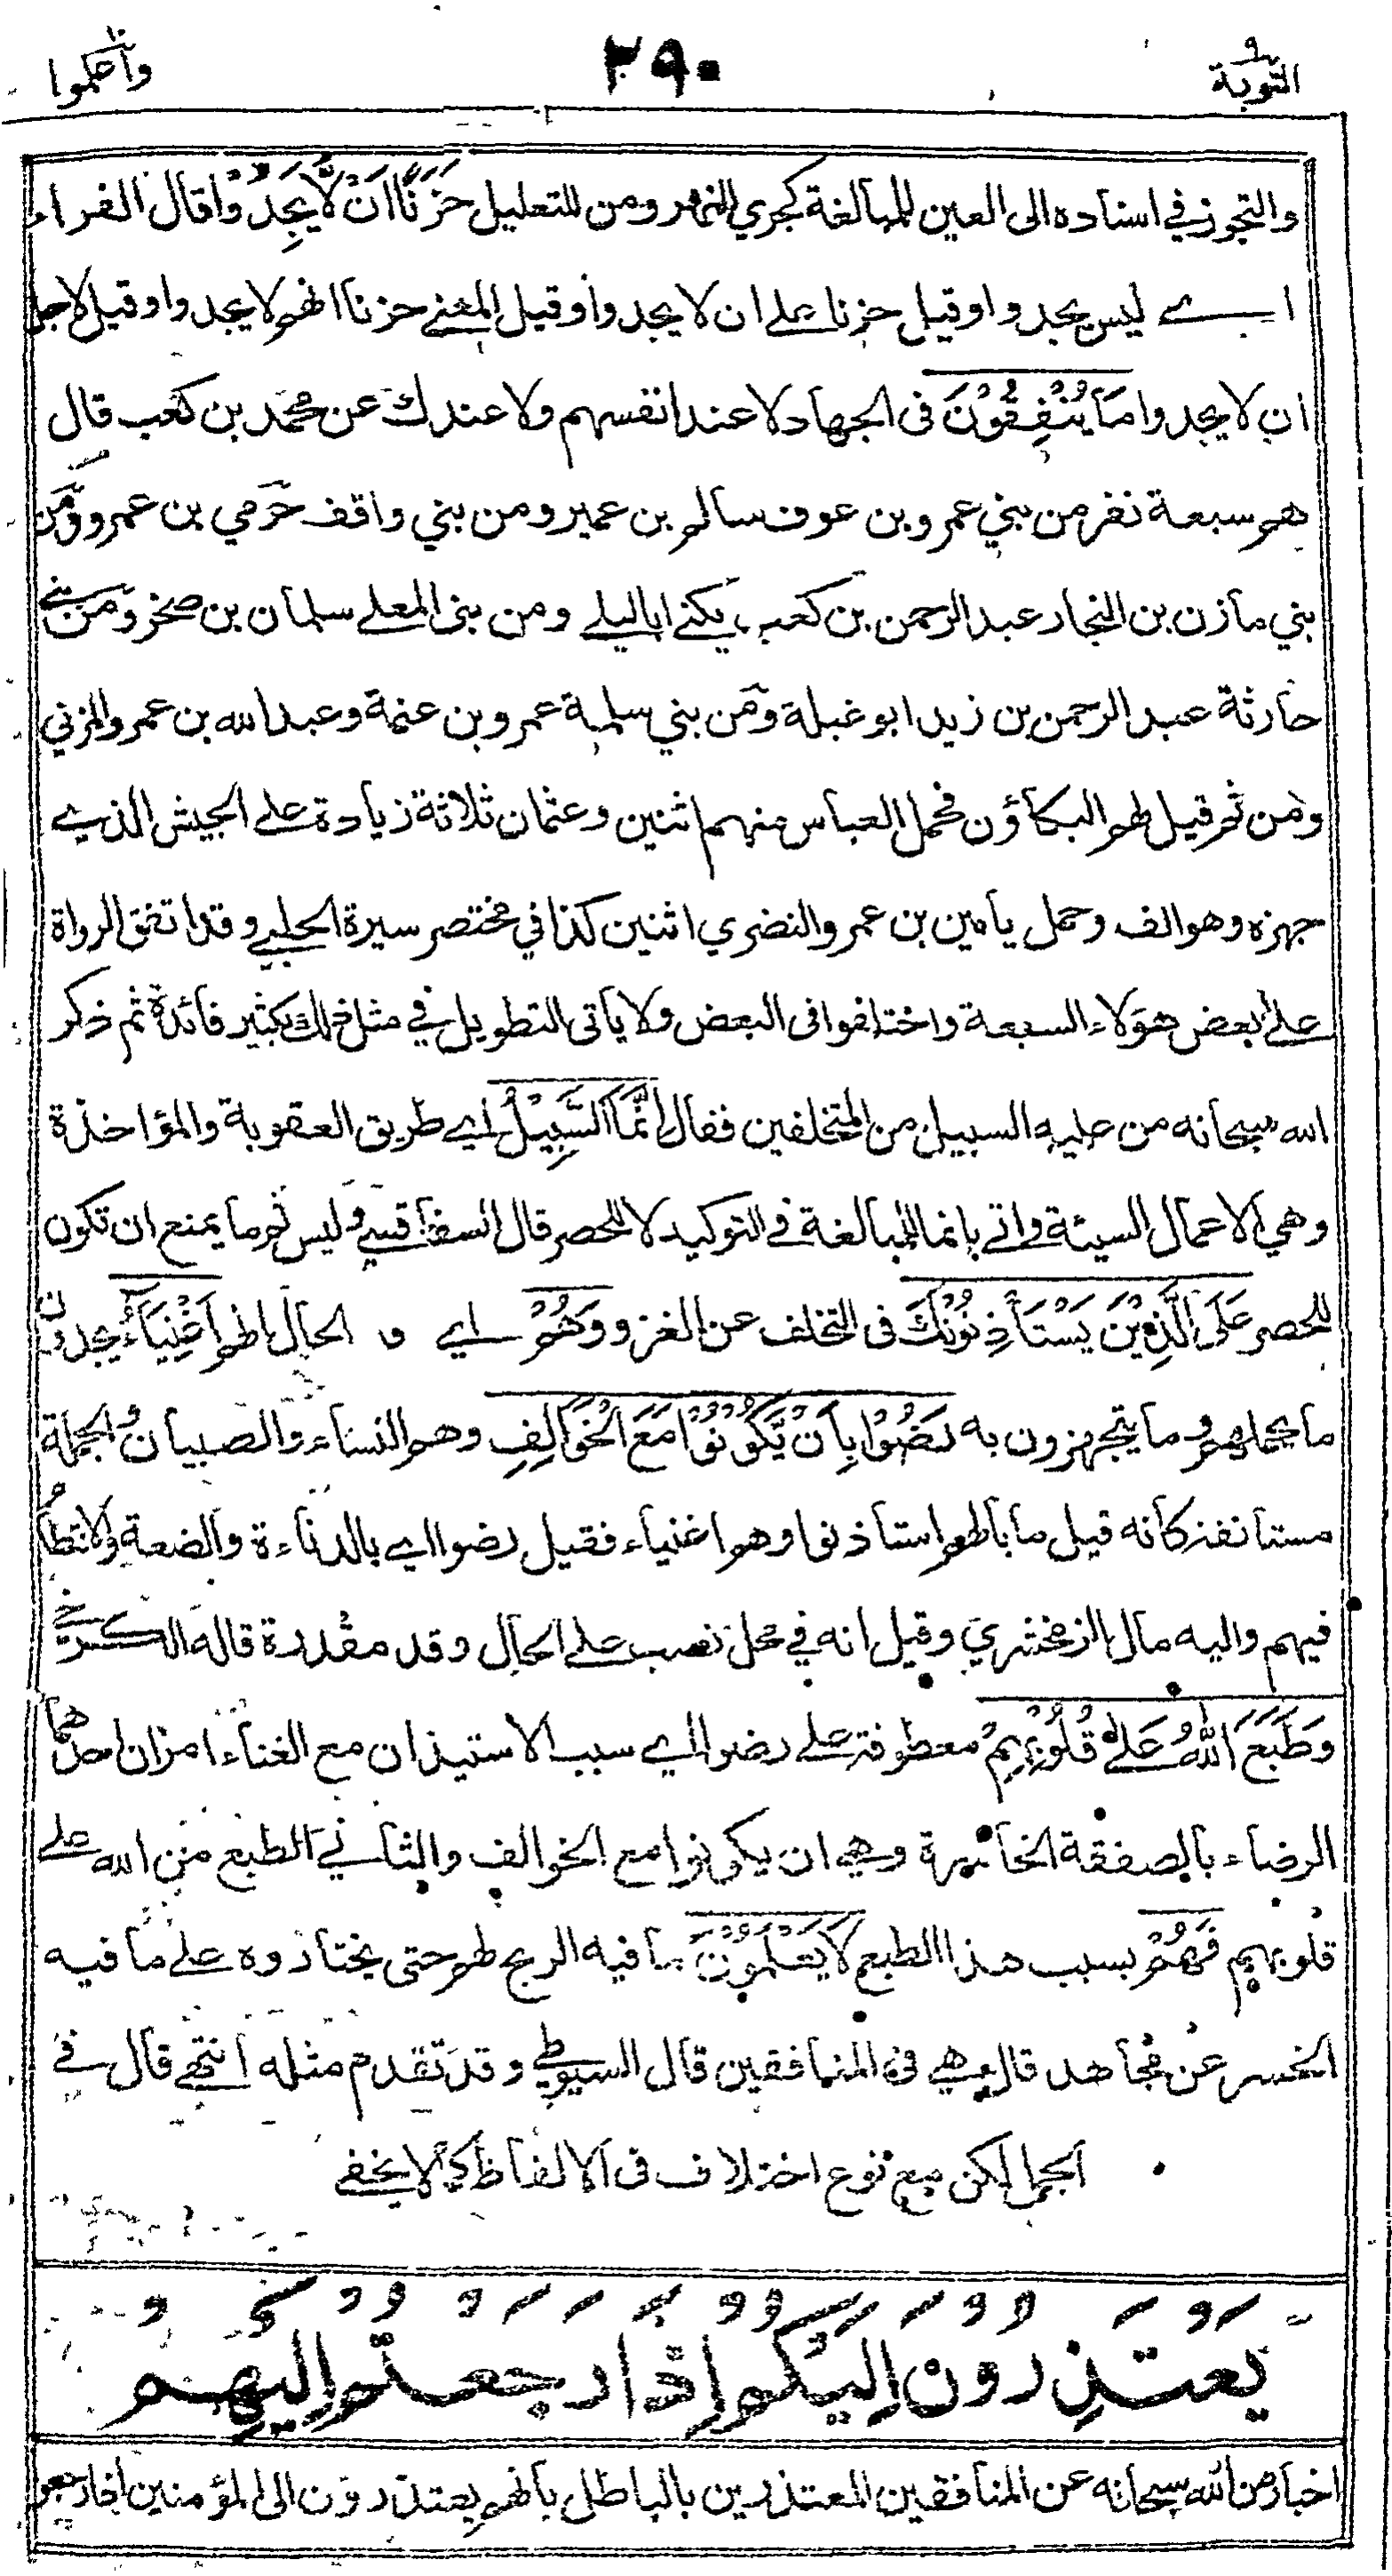 التوبة ٩
٢٩٠
واعلموا ١٠
والتجوز في اسناده الى العين للمبالغة كجري النهر ومن للتعليل حَزَنًا اَنْ لَّا يَجِدُوْا قال الفراء
اي ليس يجدوا وقيل حزنا على ان لا يجدوا وقيل المعنى حزنا انهم لا يجدوا وقيل لاجل
ان لا يجدوا مَا يُنْفِقُوْنَ في الجهاد لا عند انفسهم ولا عندك عن محمد بن كعب قال
هم سبعة نفر من بني عمرو بن عوف سالم بن عمير ومن بني واقف حرمي بن عمرو ومن
بني مازن بن النجار عبد الرحمن بن كعب يكنى ابا ليلى ومن بني المعلى سلمان بن صخر ومن بني
حارثة عبد الرحمن بن زيد ابو غبلة ومن بني سلمة عمرو بن عنمة وعبد الله بن عمرو المزني
ومن ثم قيل لهم البكاؤن فحمل العباس منهم اثنين وعثمان ثلاثة زيادة على الجيش الذي
جهزه وهو الف وحمل يامين بن عمرو النضري اثنين كذا في مختصر سيرة الحلبي وقد اتفق الرواة
على بعض هؤلاء السبعة واختلفوا في البعض ولا ياتى التطويل في مثل ذلك بكثير فائدة ثم ذكر
الله سبحانه من عليه السبيل من المتخلفين فقال اِنَّمَا السَّبِيْلُ اي طريق العقوبة والمؤاخذة
وهي الاعمال السيئة واتى بانما للمبالغة في التوكيد لا للحصر قال السفاقسي وليس ثم ما يمنع ان تكون
للحصر عَلَى الَّذِيْنَ يَسْتَأْذِنُوْنَكَ في التخلف عن الغزو وَهُمْ اي و الحال انهم اَغْنِيَآءُ يجدون
ما يحملهم وما يتجهزون به رَضُوْا بِاَنْ يَّكُوْنُوْا مَعَ الْخَوَالِفِ وهم النساء والصبيان والجملة
مستانفة كانه قيل ما بالهم استاذنوا وهم اغنياء فقيل رضوا اي بالدناءة والضعة والانتظام
فيهم واليه مال الزمخشري وقيل انه في محل نصب على الحال وقد مقدرة قاله الكرخي
وَطَبَعَ اللهُ عَلٰى قُلُوْبِهِمْ معطوفة على رضوا اي سبب الاستيذان مع الغناء امران احدهما
الرضاء بالصفقة الخاسرة وهي ان يكونوا مع الخوالف والثاني الطبع من الله على
قلوبهم فَهُمْ بسبب هذا الطبع لَا يَعْلَمُوْنَ ما فيه الربح لهم حتى يختاروه على ما فيه
الخسر عن مجاهد قال هي في المنافقين قال السيوطي وقد تقدم مثله انتهى قال في
الجمل لكن مع نوع اختلاف في الالفاظ كما لا يخفى
يَعْتَذِرُوْنَ اِلَيْكُمْ اِذَا رَجَعْتُمْ اِلَيْهِمْ
اخبار من الله سبحانه عن المنافقين المعتذرين بالباطل بانهم يعتذرون الى المؤمنين اذا رجعوا